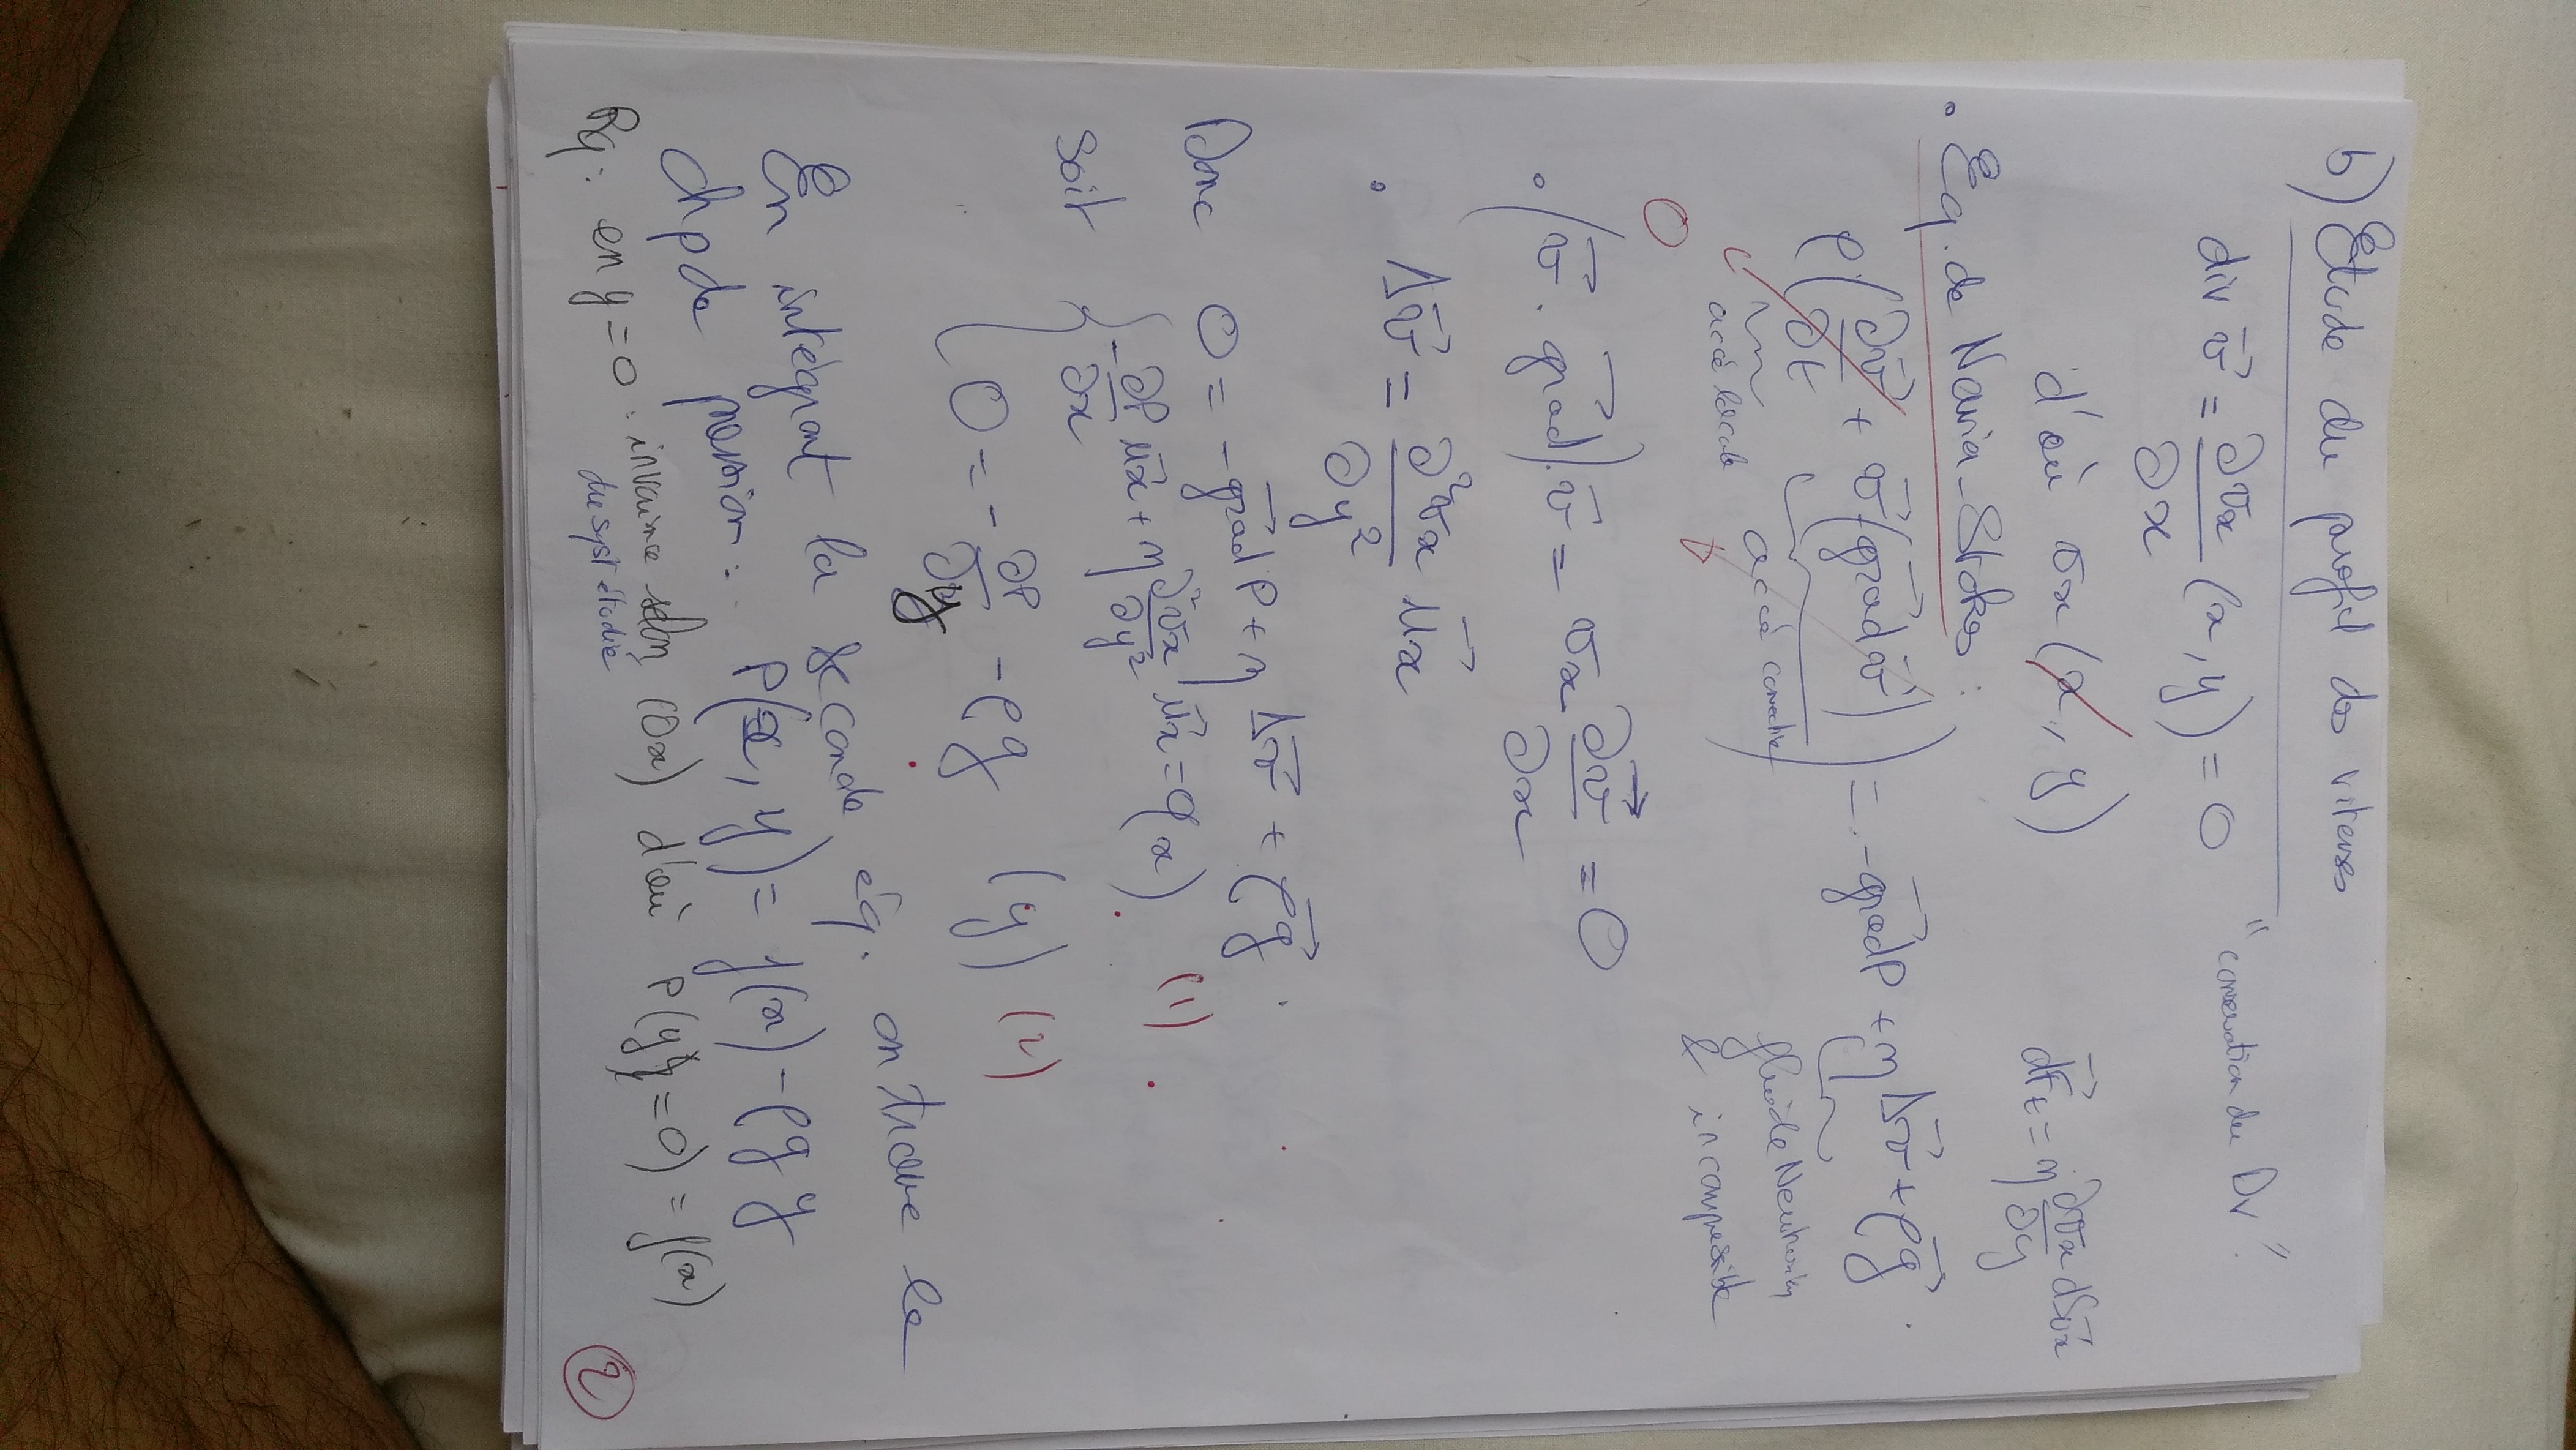 b) Etude du profil des vitesses
div v⃗ = ∂vx/∂x (x, y) = 0 "conservation du Dv"
d'où vx (x, y) dFt⃗ = η ∂vx/∂y dS ux⃗
• Eq. de Navier-Stokes :
ρ ( ∂v⃗/∂t + v⃗ (grad⃗ v⃗) ) = - grad⃗ P + η Δv⃗ + ρg⃗
0 accé locale accé convective fluide Newtonien
& incompressible
• (v⃗ . grad⃗) . v⃗ = vx ∂v⃗/∂x = 0
• Δv⃗ = ∂²vx/∂y² ux⃗
Donc 0 = - grad⃗ P + η Δv⃗ + ρg⃗
soit { -∂P/∂x ux⃗ + η ∂²vx/∂y² ux⃗ = 0 (x) (1)
0 = - ∂P/∂y - ρg (y) (2)
En intégrant la seconde éq. on trouve le
chp de pression : P(x, y) = f(x) - ρg y
Rq : en y = 0 : invariance selon (Ox) d'où P(y = 0) = f(x)
du syst étudié
2